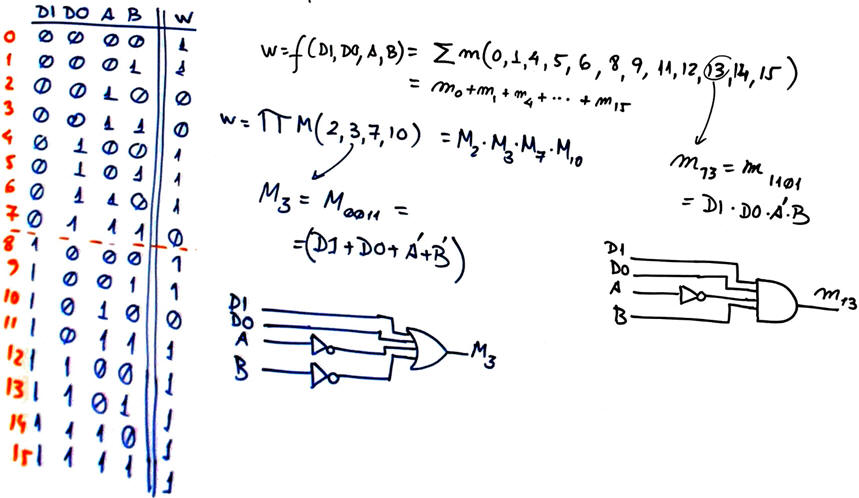 D1 D0 A B W
0 0 0 0 0 1
1 0 0 0 1 1
2 0 0 1 0 0
3 0 0 1 1 0
4 0 1 0 0 1
5 0 1 0 1 1
6 0 1 1 0 1
7 0 1 1 1 0
8 1 0 0 0 1
9 1 0 0 1 1
10 1 0 1 0 0
11 1 0 1 1 1
12 1 1 0 0 1
13 1 1 0 1 1
14 1 1 1 0 1
15 1 1 1 1 1
W=f(D1, D0, A, B) = ∑m(0, 1, 4, 5, 6, 8, 9, 11, 12, 13, 14, 15)
= m0+m1+m4+···+m15
W= ∏ M(2, 3, 7, 10) = M2·M3·M7·M10
M3 = M0011 =
=(D1+D0+A'+B')
m13 = m1101
= D1·D0·A'·B
D1
D0
A
B
M3
D1
D0
A
B
m13